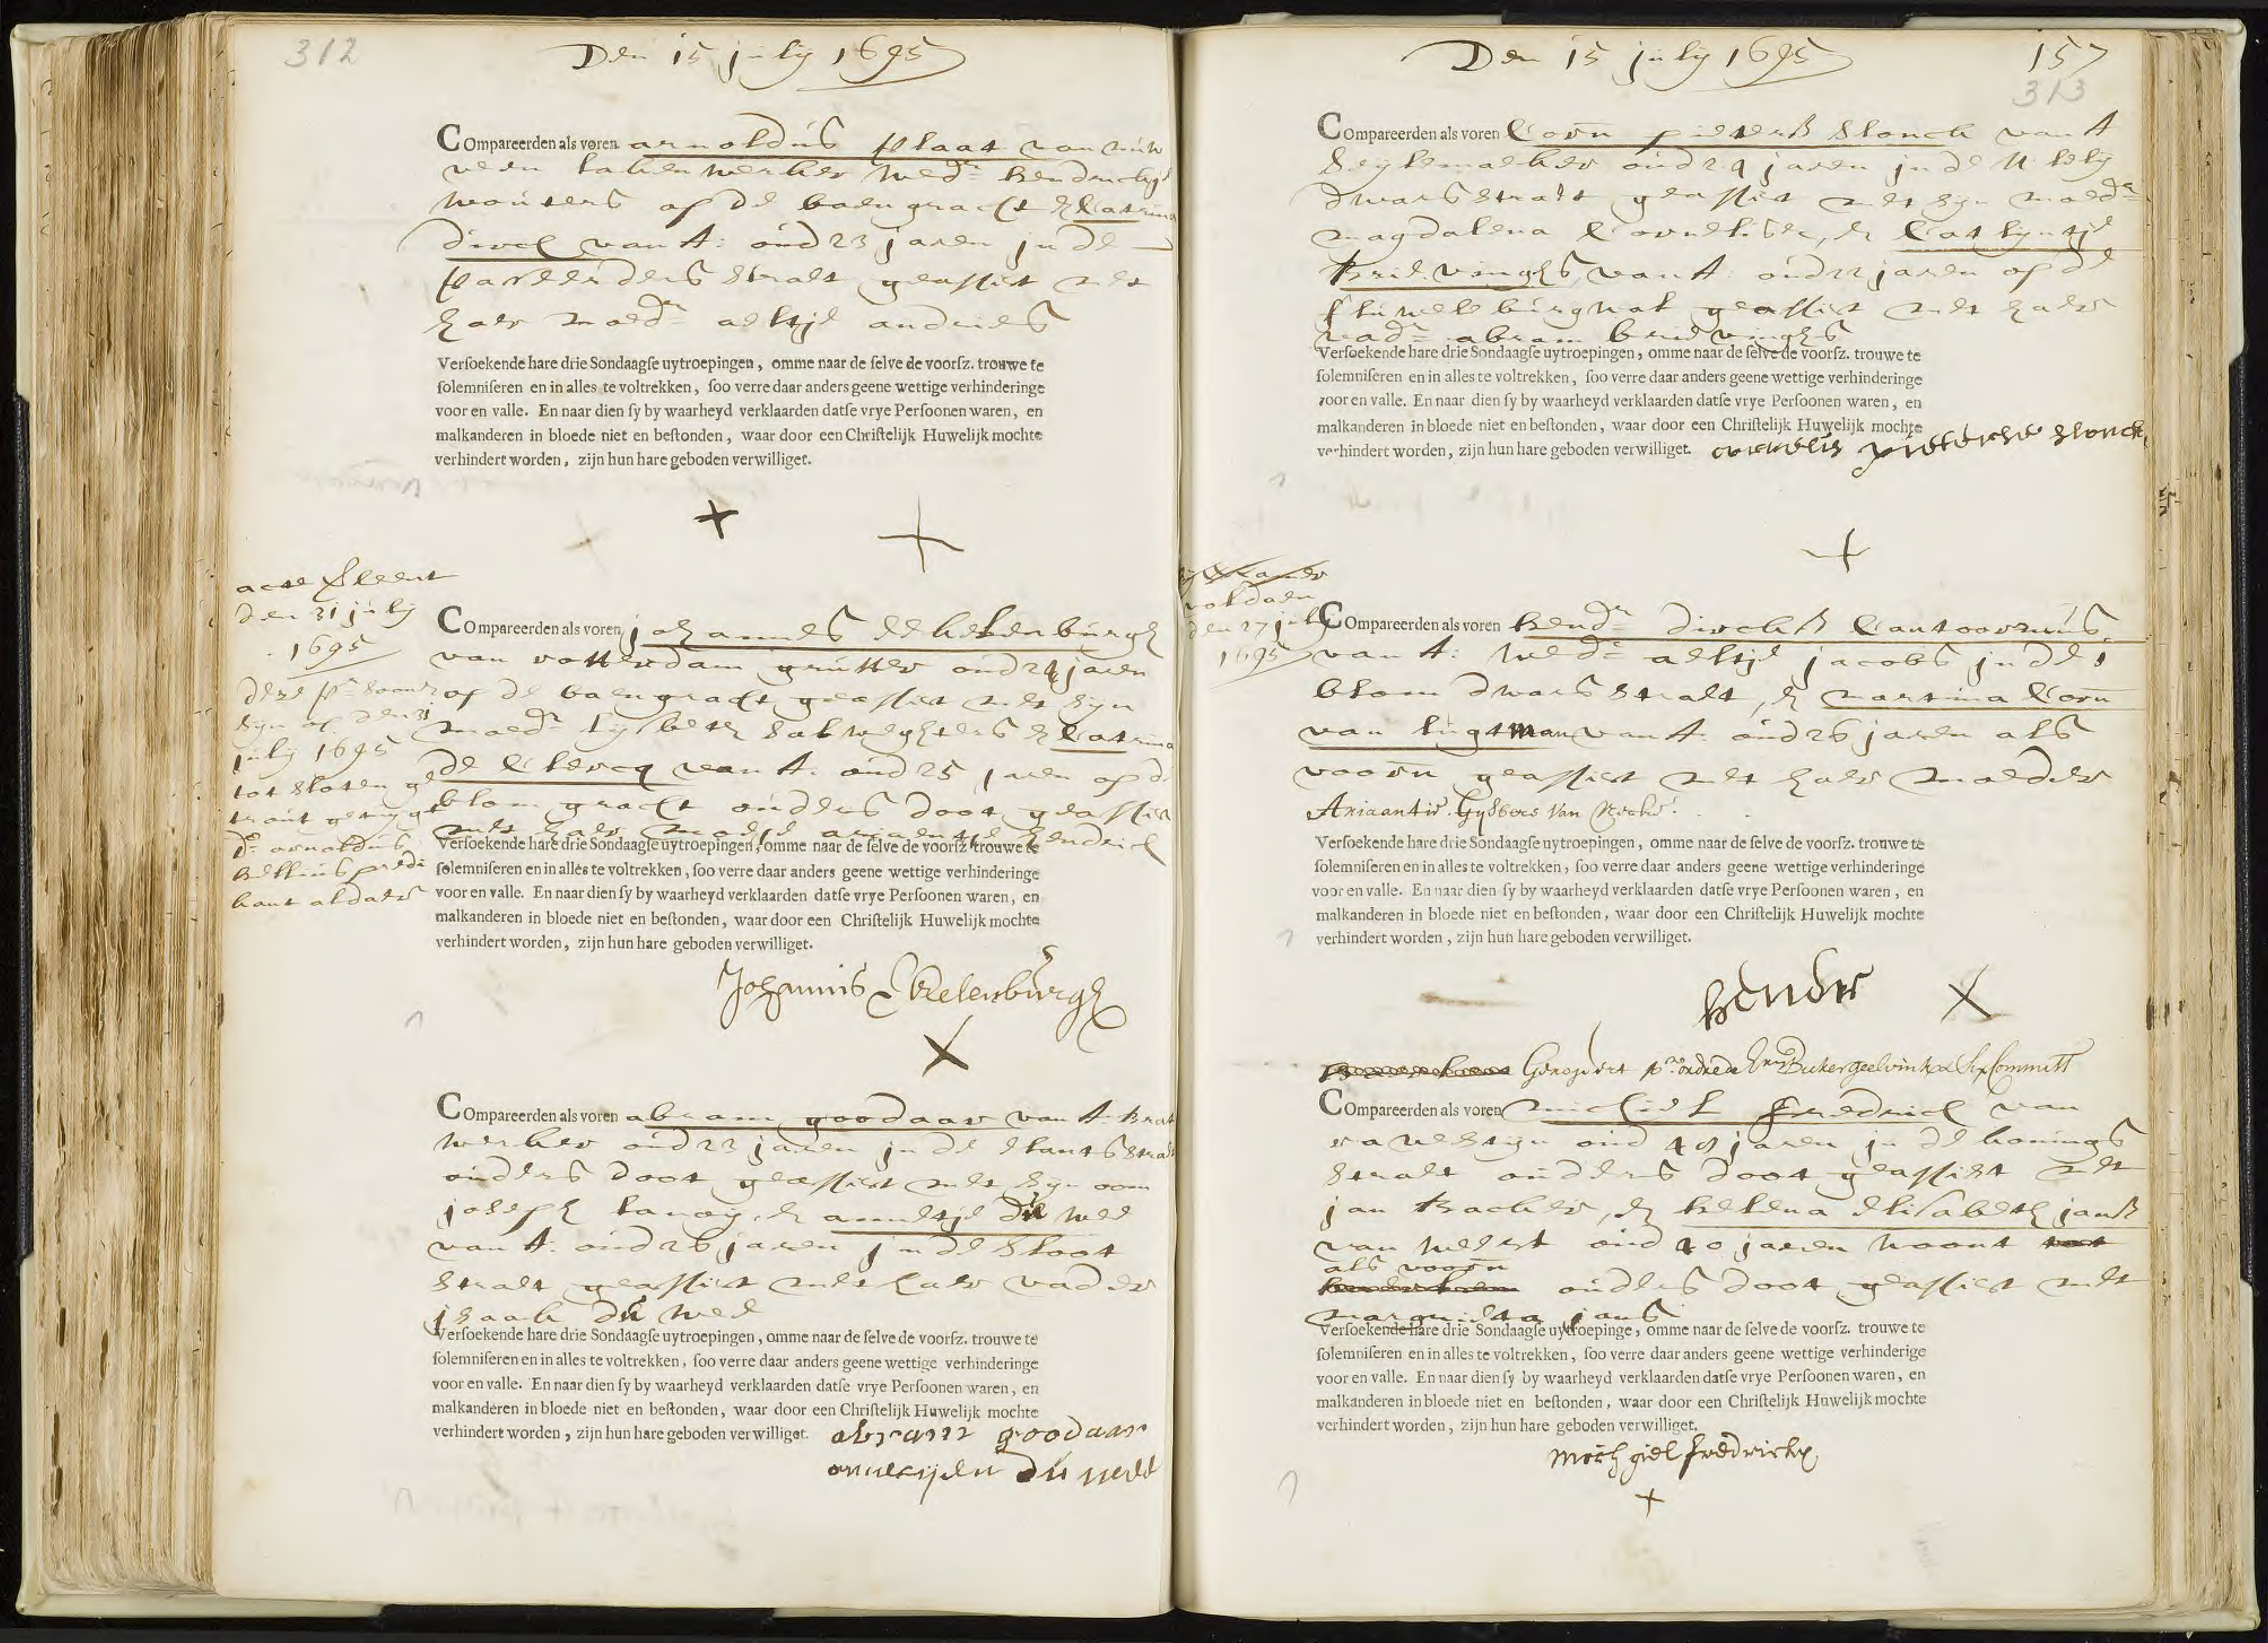 312
Den 15 julij 1695
Compareerden als voren arnoldus plaat van nieuw
veen lakenwerker wedr hendrickje
wouters op de baengracht & Catrina
dirck van A: oud 23 jaren in de
straet geassist met
haer moedr aeltje andries
Versoekende hare drie Sondaagse uytroepingen, omme naar de selve de voorsz. trouwe te
solemniseren en in alles te voltrekken, soo verre daar anders geene wettige verhinderinge
voor en valle. En naar dien sy by waarheyd verklaarden datse vrye Persoonen waren, en
malkanderen in bloede niet en bestonden, waar door een Christelijk Huwelijk mochte
verhindert worden, zijn hun hare geboden verwilliget.
acte verleent
den 31 julij
1695
dese psoonen
sijn op den 31
julij 1695
tot sloten ge
trout getuijgt
Do arnoldus
predi
kant aldaer
Compareerden als voren johannes Eekelenburgh
van rotterdam grutter oud 24 jaren
op de baengracht geassist met sijn
moedr lijsbeth & Catrina
de Clercq van A. oud 25 jaren op d
blom gracht ouders doot geassist
met haer ariaentje hendrick
Versoekende hare drie Sondaagse uytroepingen, omme naar de selve de voorsz. trouwe te
solemniseren en in alles te voltrekken, soo verre daar anders geene wettige verhinderinge
voor en valle. En naar dien sy by waarheyd verklaarden datse vrye Persoonen waren, en
malkanderen in bloede niet en bestonden, waar door een Christelijk Huwelijk mochte
verhindert worden, zijn hun hare geboden verwilliget.
Johannis Ekelenburgh
Compareerden als voren abram goodaar van A. krat
werker oud 23 jaren in de elantsstraet
ouders doot geassist met sijn oom
joseph lanoy, & annetje du wee
van A. oud 26 jaren in de sloot
straet geassist met haer vader
isaak du wee
Versoekende hare drie Sondaagse uytroepingen, omme naar de selve de voorsz. trouwe te
solemniseren en in alles te voltrekken, soo verre daar anders geene wettige verhinderinge
voor en valle. En naar dien sy by waarheyd verklaarden datse vrye Persoonen waren, en
malkanderen in bloede niet en bestonden, waar door een Christelijk Huwelijk mochte
verhindert worden, zijn hun hare geboden verwilliget.
abram goodaar
du wee
Den 15 julij 1695
157
313
Compareerden als voren Corn pieterss slonck van A
seijlemaeker oud 24 jaren in de N: lelij
dwarsstraet geassist met sijn moedr
magdalena Cornelisse, & Catlijntje
van A: oud 22 jaren op de
fluwele burgwal geassist met haer
vadr abram
Versoekende hare drie Sondaagse uytroepingen, omme naar de selve de voorsz. trouwe te
solemniseren en in alles te voltrekken, soo verre daar anders geene wettige verhinderinge
voor en valle. En naar dien sy by waarheyd verklaarden datse vrye Persoonen waren, en
malkanderen in bloede niet en bestonden, waar door een Christelijk Huwelijk mochte
verhindert worden, zijn hun hare geboden verwilliget.
cornelis pieterse slonck
voldaen
den 27 julij
1695
Compareerden als voren hendr dirckss Cantoornus
van A: wedr aeltje jacobs in de
blom dwarsstraet, & martina Corn
van lugtman van A: oud 26 jaren als
voorn geassist met haer moeder
Ariaantie Gysbers van
Versoekende hare drie Sondaagse uytroepingen, omme naar de selve de voorsz. trouwe te
solemniseren en in alles te voltrekken, soo verre daar anders geene wettige verhinderinge
voor en valle. En naar dien sy by waarheyd verklaarden datse vrye Persoonen waren, en
malkanderen in bloede niet en bestonden, waar door een Christelijk Huwelijk mochte
verhindert worden, zijn hun hare geboden verwilliget.
Geroijeert pr ordre de Bicker Geelvinck Committ
Compareerden als voren michiel fredrick van
ravestijn oud 40 jaren in de konings
straet ouders doot geassist met
jan backer, & helena elisabeth janss
van weert oud 40 jaren woont
als voorn
ouders doot geassist met
margrieta jans
Versoekende hare drie Sondaagse uytroepinge, omme naar de selve de voorsz. trouwe te
solemniseren en in alles te voltrekken, soo verre daar anders geene wettige verhinderige
voor en valle. En naar dien sy by waarheyd verklaarden datse vrye Persoonen waren, en
malkanderen in bloede niet en bestonden, waar door een Christelijk Huwelijk mochte
verhindert worden, zijn hun hare geboden verwilliget.